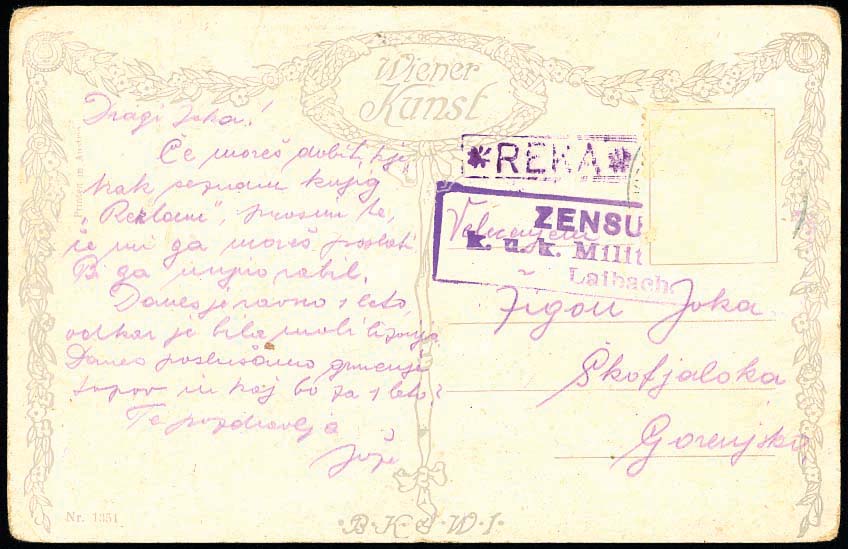 Wiener
Kunst
Dragi Joka!
Če moreš dobiti kje
kak seznam knjig
"Reklam", prosim te,
če mi ga moreš poslati
Bi ga nujno rabil.
Danes je ravno 1 leto,
odkar je bila
Danes poslušamo grmenje
topov in kaj bo za 1 leto?
Te pozdravlja
Jože
*REKA*
ZENSU
k. u. k. Milit
Laibach.
Žigon Joka
Škofjaloka
Gorenjsko
Printed in Austria
Nr. 1351
B.K.W.I.